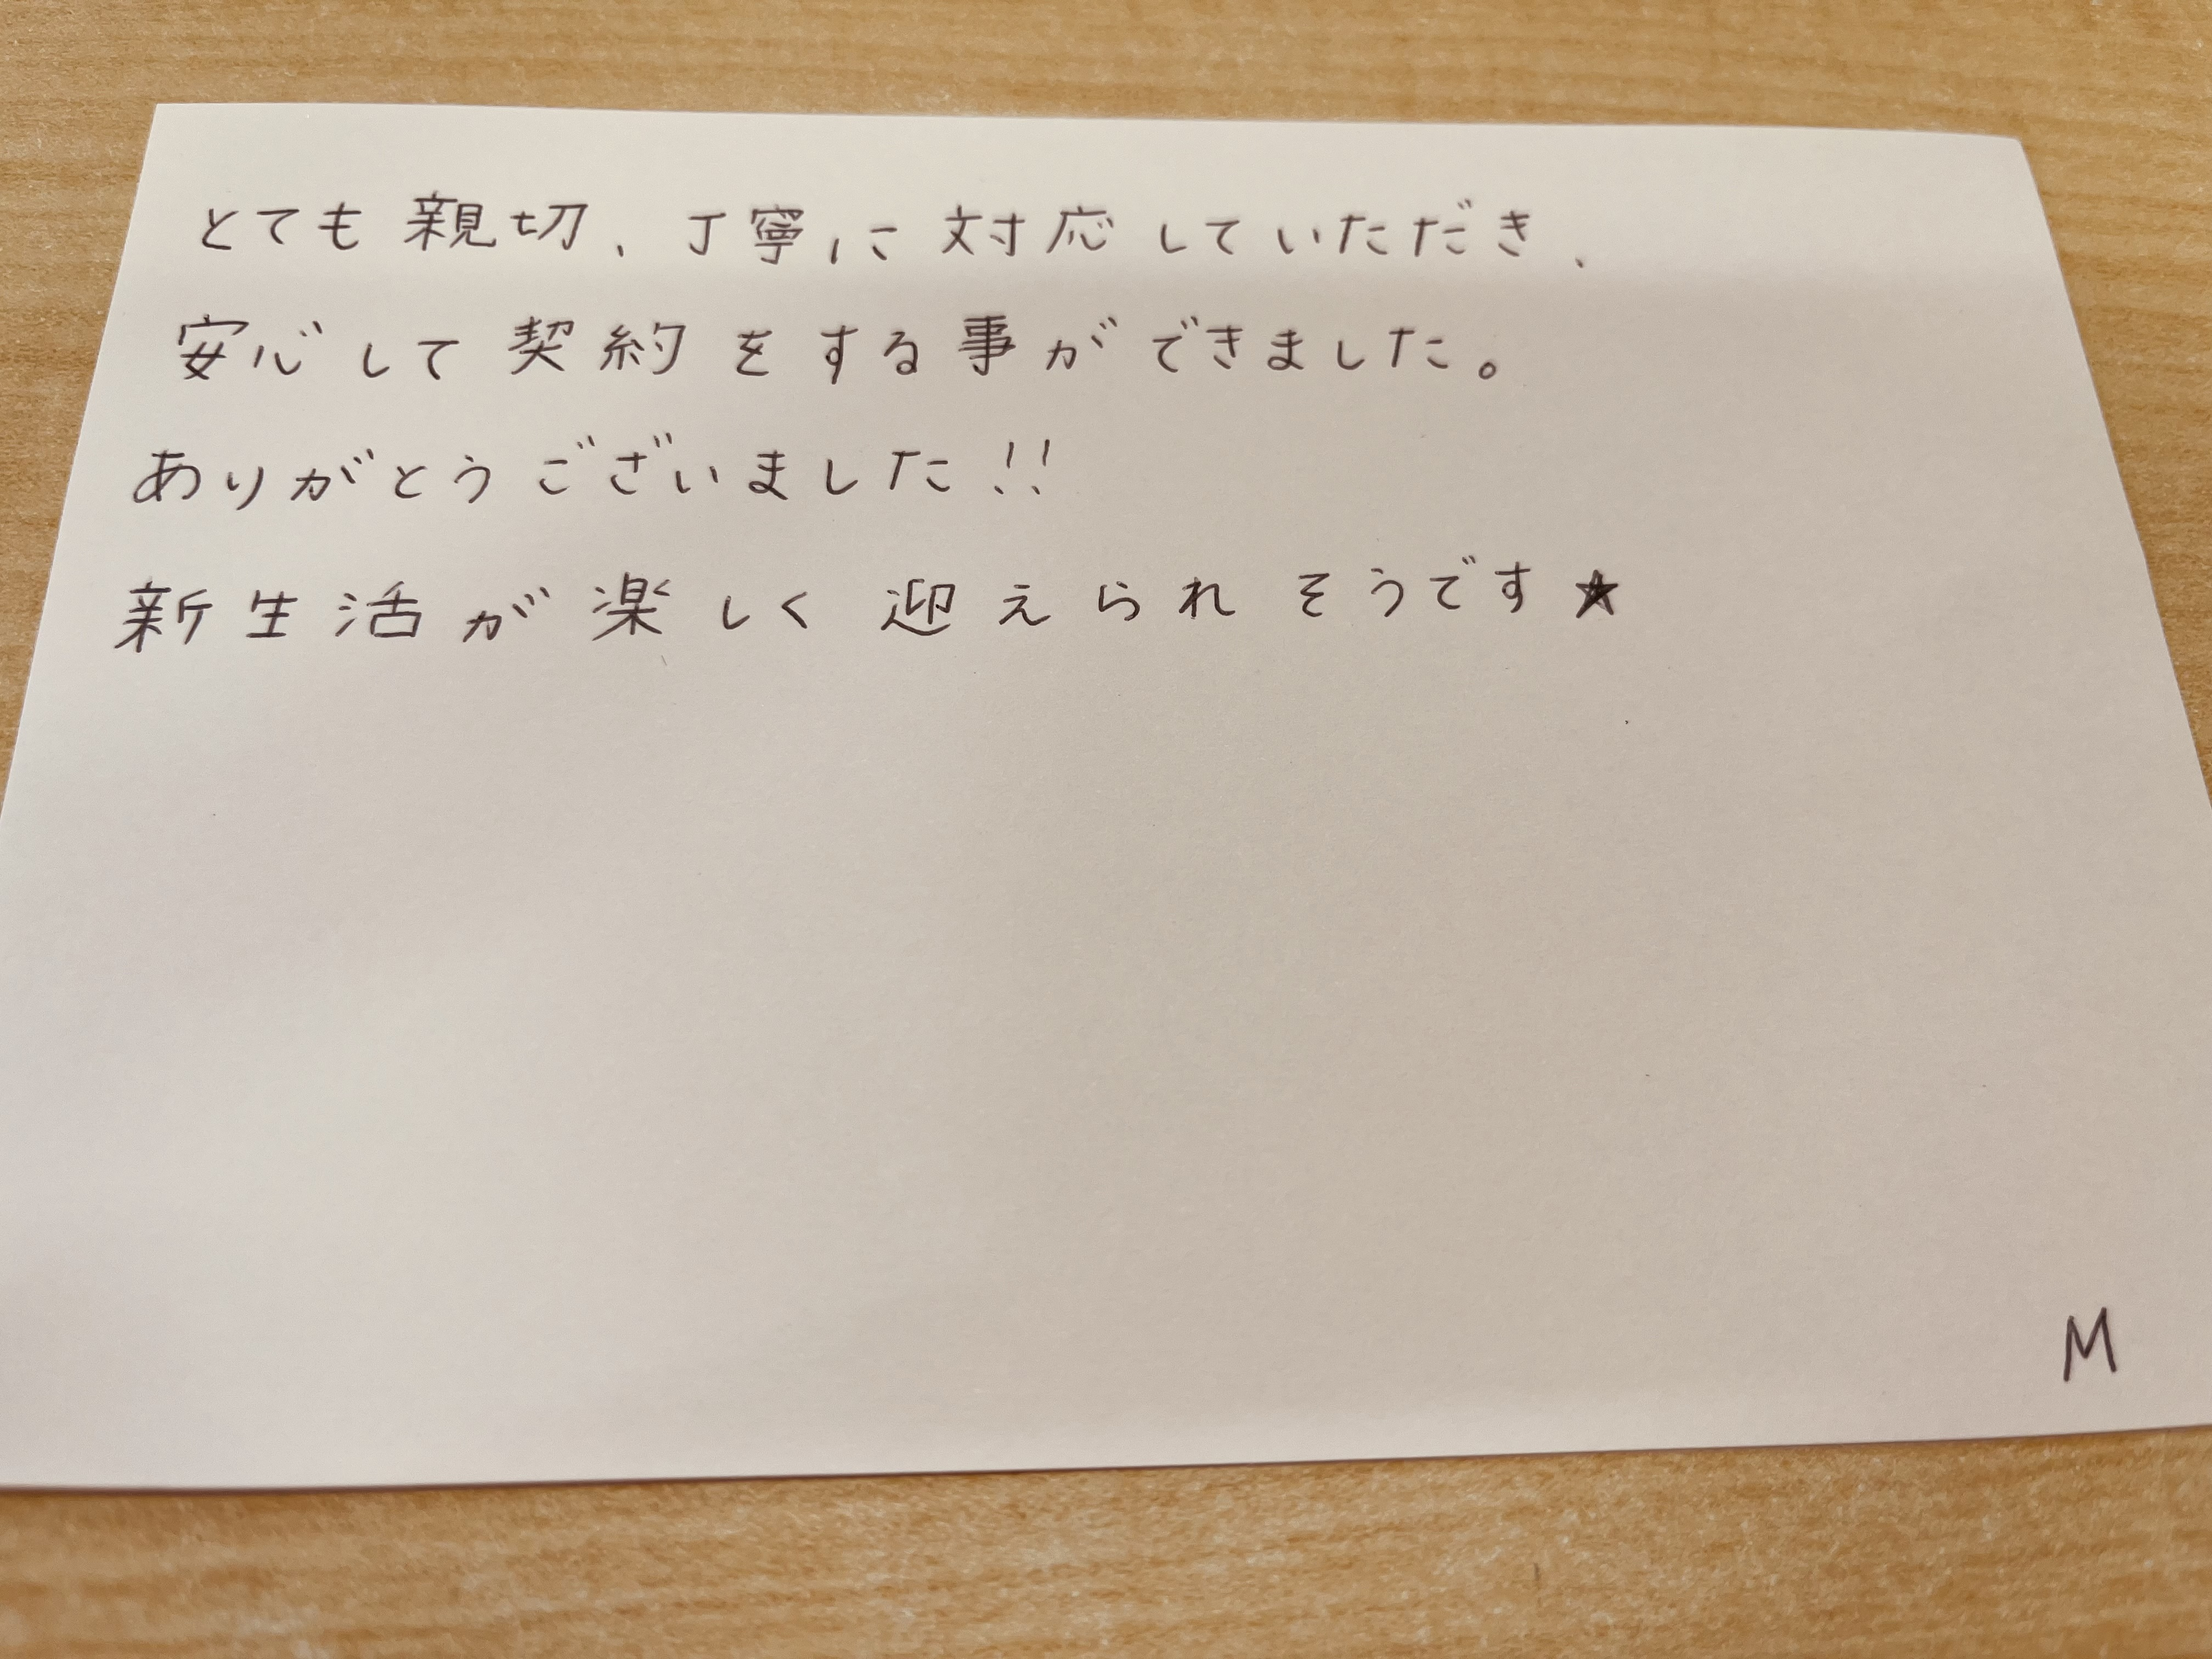 とても親切、丁寧に対応していただき、
安心して契約をする事ができました。
ありがとうございました!!
新生活が楽しく迎えられそうです★
M